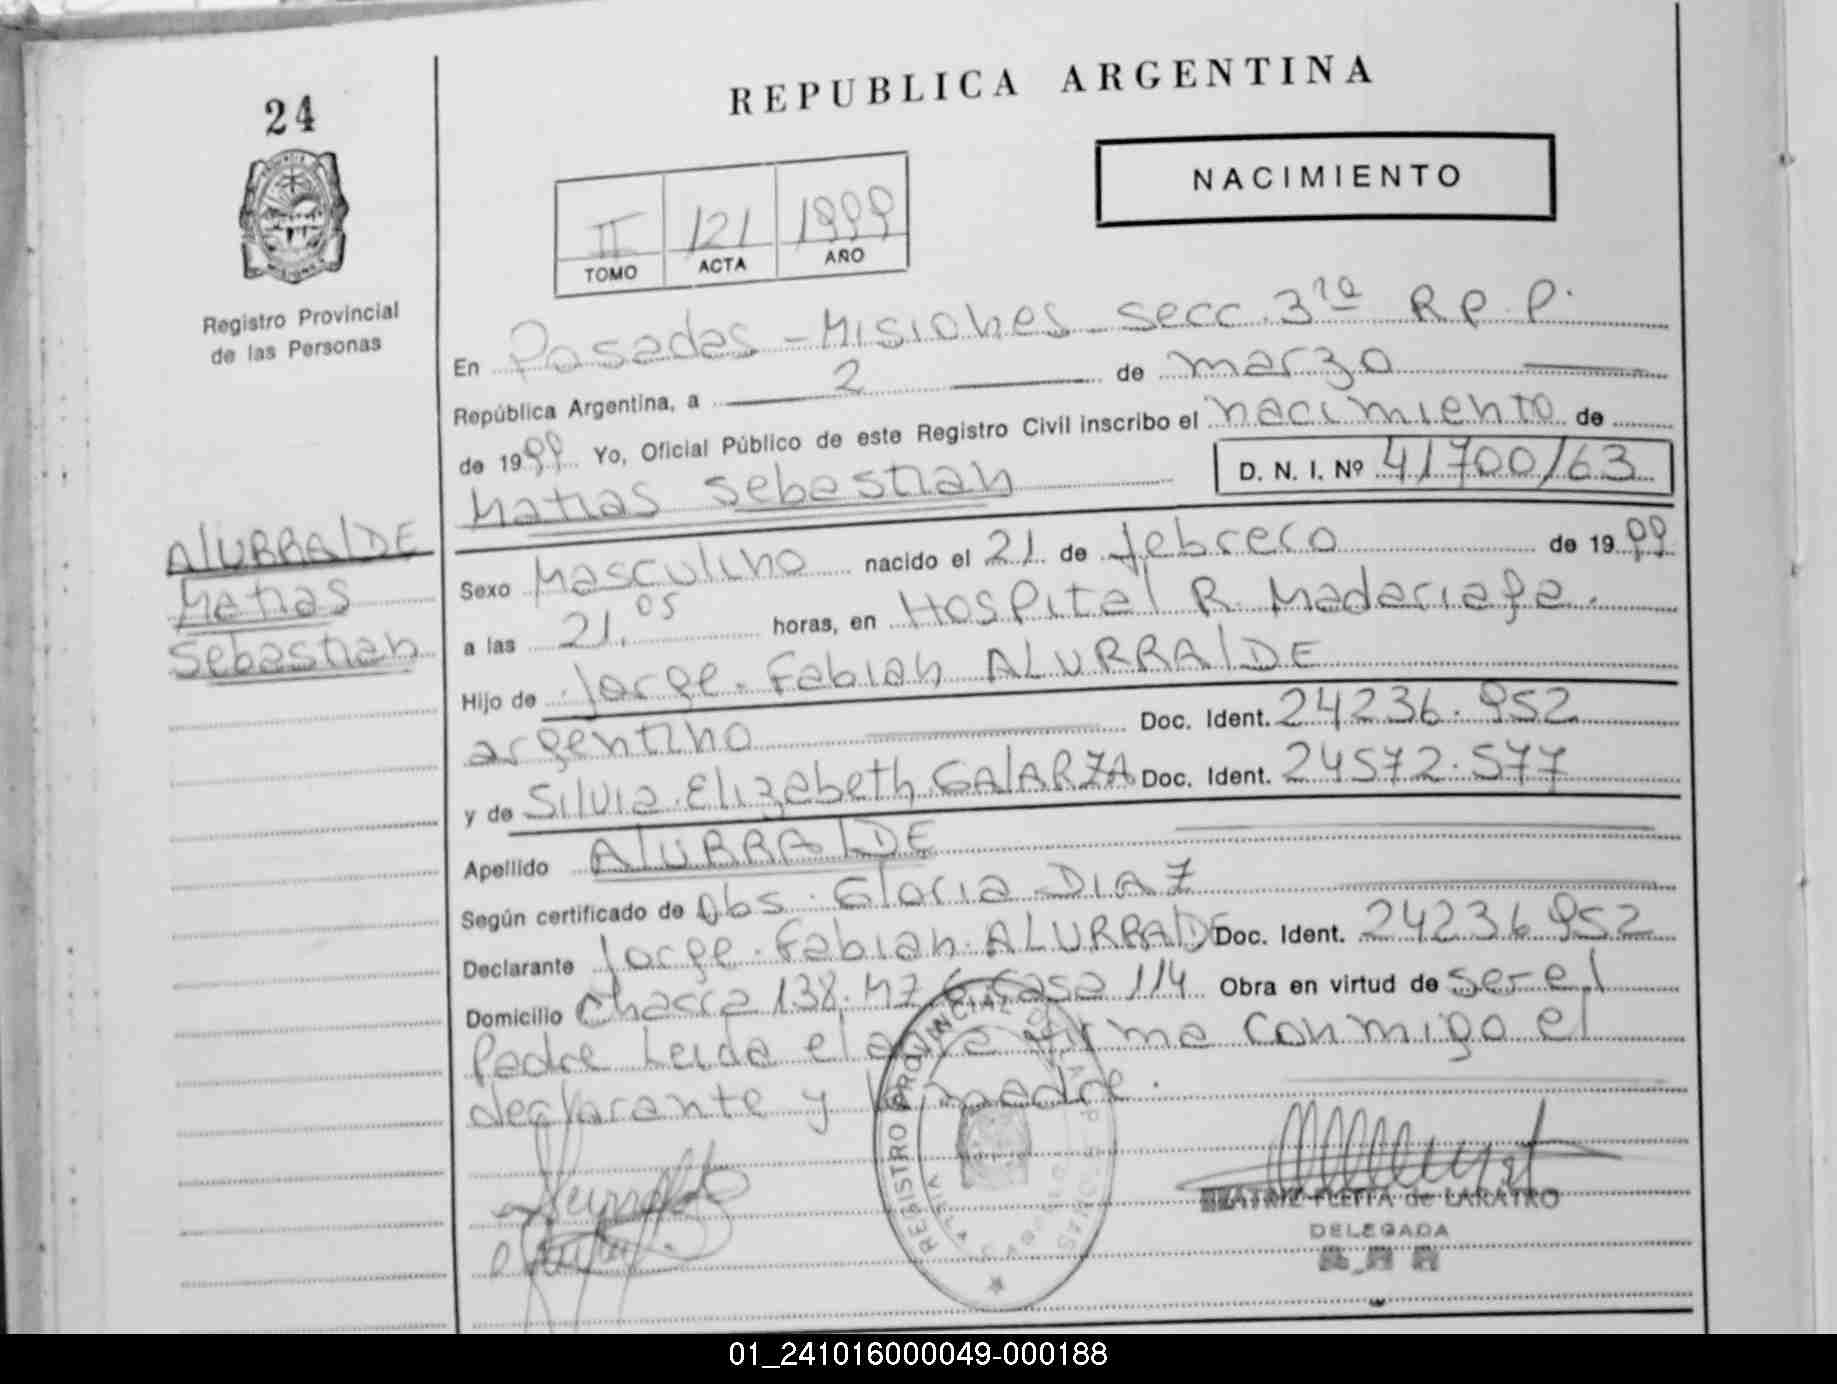 24
REPUBLICA ARGENTINA
NACIMIENTO
II 121 1999
TOMO ACTA AÑO
Registro Provincial
de las Personas
En Posadas - Misiones - secc. 3ra R.P.P.
República Argentina, a 2 de marzo
de 1999 Yo, Oficial Público de este Registro Civil inscribo el nacimiento de
Matias Sebastian D. N. I. Nº 41700163
ALURRALDE
Matias
Sebastian
Sexo Masculino nacido el 21 de febrero de 1999
a las 21.05 horas, en Hospital R. Madariaga.
Hijo de Jorge Fabian ALURRALDE
argentino Doc. Ident. 24236.952
y de Silvia Elizabeth GALARZA Doc. Ident. 24572.577
Apellido ALURRALDE
Según certificado de Obs. Gloria DIAZ
Declarante Jorge Fabian ALURRALDE Doc. Ident. 24236952
Domicilio Chacra 138 Mz 6 Casa 114 Obra en virtud de ser el
Padre Leida el acta firma conmigo el
declarante y la madre.
REGISTRO PROVINCIAL DE LAS PERSONAS
BEATRIZ FLEITA de LARATRO
DELEGADA
01_241016000049-000188